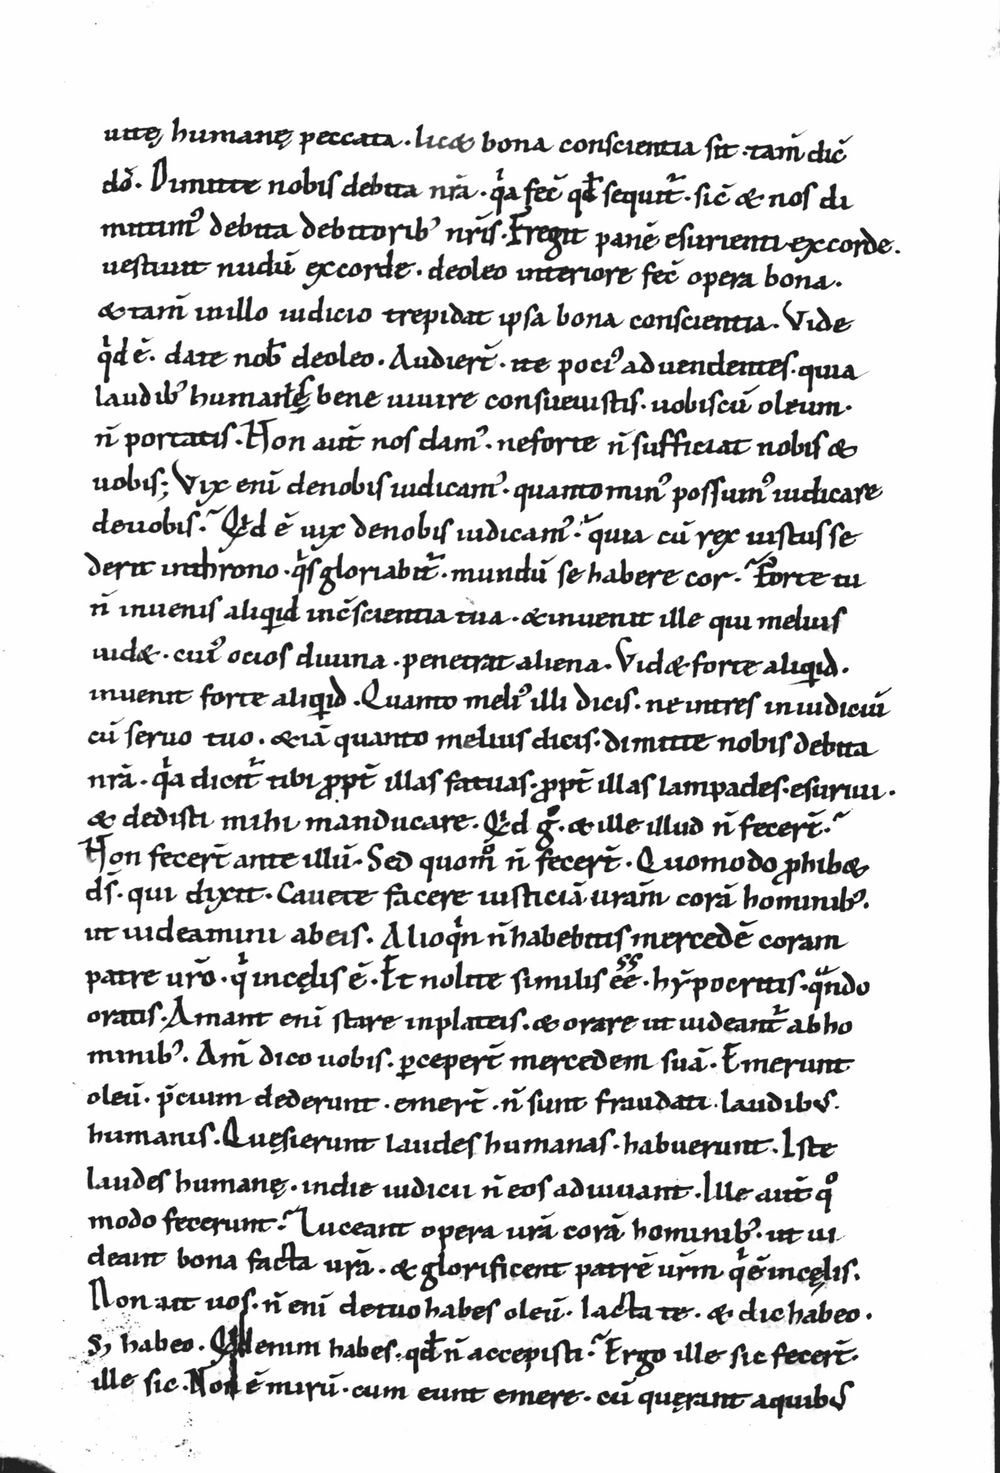 uitę humanę peccata . lic& bona conscientia sit . tam̄ dic̄
dō . Dimitte nobis debita nrā . qͥa fec̄ qđ sequit᷑ . sic̄ & nos di
mittim᷒ debita debitorib᷒ nrīs . Fregit panē esurienti ex corde .
uestiuit nudū ex corde . de oleo interiore fec̄ opera bona .
& tam̄ in illo iudicio trepidat ipsa bona conscientia . Vide
qͥd ē . date nob̄ de oleo . Audiert̄ . ite poci᷒ ad uendentes . quia
laudib᷒ humanis bene uiuire consueuistis . uobiscū oleum .
n̄ portatis . Non aut̄ nos dam᷒ . ne forte n̄ sufficiat nobis &
uobis ; Vix enī de nobis iudicam᷒ . quanto min᷒ possum᷒ iudicare
de uobis . Qͥd ē uix de nobis iudicam᷒ . quia cū rex iustus se
derit in throno . qͥs gloriabit᷑ . mundū se habere cor . Forte tu
n̄ inuenis aliquid in c̄scientia tua . & inuenit ille qui melius
uid& . cui᷒ ocios diuina . penetrat aliena . Vid& forte aliquid .
inuenit forte aliquid . Quanto meli᷒ illi dicis . ne intres in iudiciū
cū seruo tuo . & iā quanto melius dicis . dimitte nobis debita
nrā . qͥa dicit᷑ tibi ꝓpt̄ illas fatuas . ꝓpt̄ illas lampades . esuriui .
& dedisti mihi manducare . Qͥd gͦ . & ille illud n̄ fecert̄ .
Non fecert̄ ante illū . Sed quom̊ n̄ fecert̄ . Quomodo ꝓhib&
ds̄ . qui dixit . Cauete facere iusticiā uram̄ corā hominib᷒ .
ut uideamini ab eis . Alioqͥn n̄ habebitis mercedē coram
patre urō . qͥ in cęlis ē . Et nolite similis ēē . hẏpocritis . qᵃndo
oratis . Amant enī stare in plateis . & orare ut uideant᷑ ab ho
minib᷒ . Am̄ dico uobis . ꝑcepert̄ mercedem suā . Emerunt
oleū . p̄cium dederunt . emert̄ . n̄ sunt fraudati . laudibus .
humanis . Quęsierunt laudes humanas . habuerunt . Iste
laudes humanę . in die iudicii n̄ eos adiuuant . Ille aut̄ qͦ
modo fecerunt . Luceant opera urā corā hominib᷒ . ut ui
deant bona facta urā . & glorificent patrē urm̄ qͥ ē in cęlis .
Non ait uos . n̄ enī de tuo habes oleū . lacta te . & dic habeo .
s; habeo . Qͥd enim habes . qđ n̄ accepisti . Ergo ille sic fecert̄ .
ille sic . Non ē mirū . cum eunt emere . cū quęrant a quibus